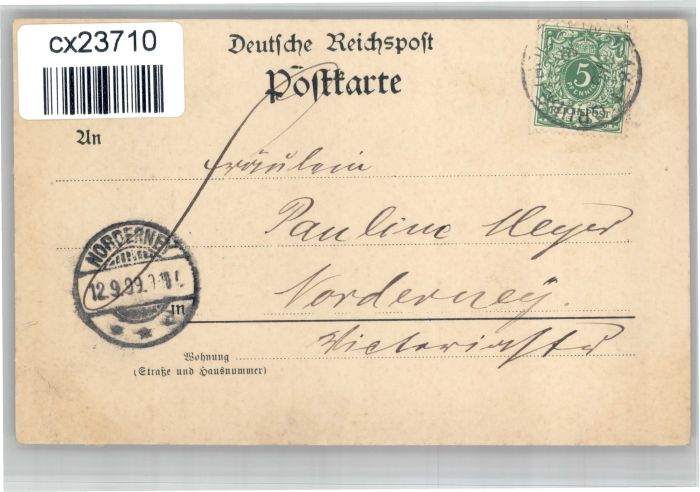 cx23710
Deutsche Reichspost
Postkarte
5
PFENNIG
An
Fräulein
Pauline Meyer
NORDERNEY
12.9.99.
Norderney.
in
Victoriastr
Wohnung
(Straße und Hausnummer)